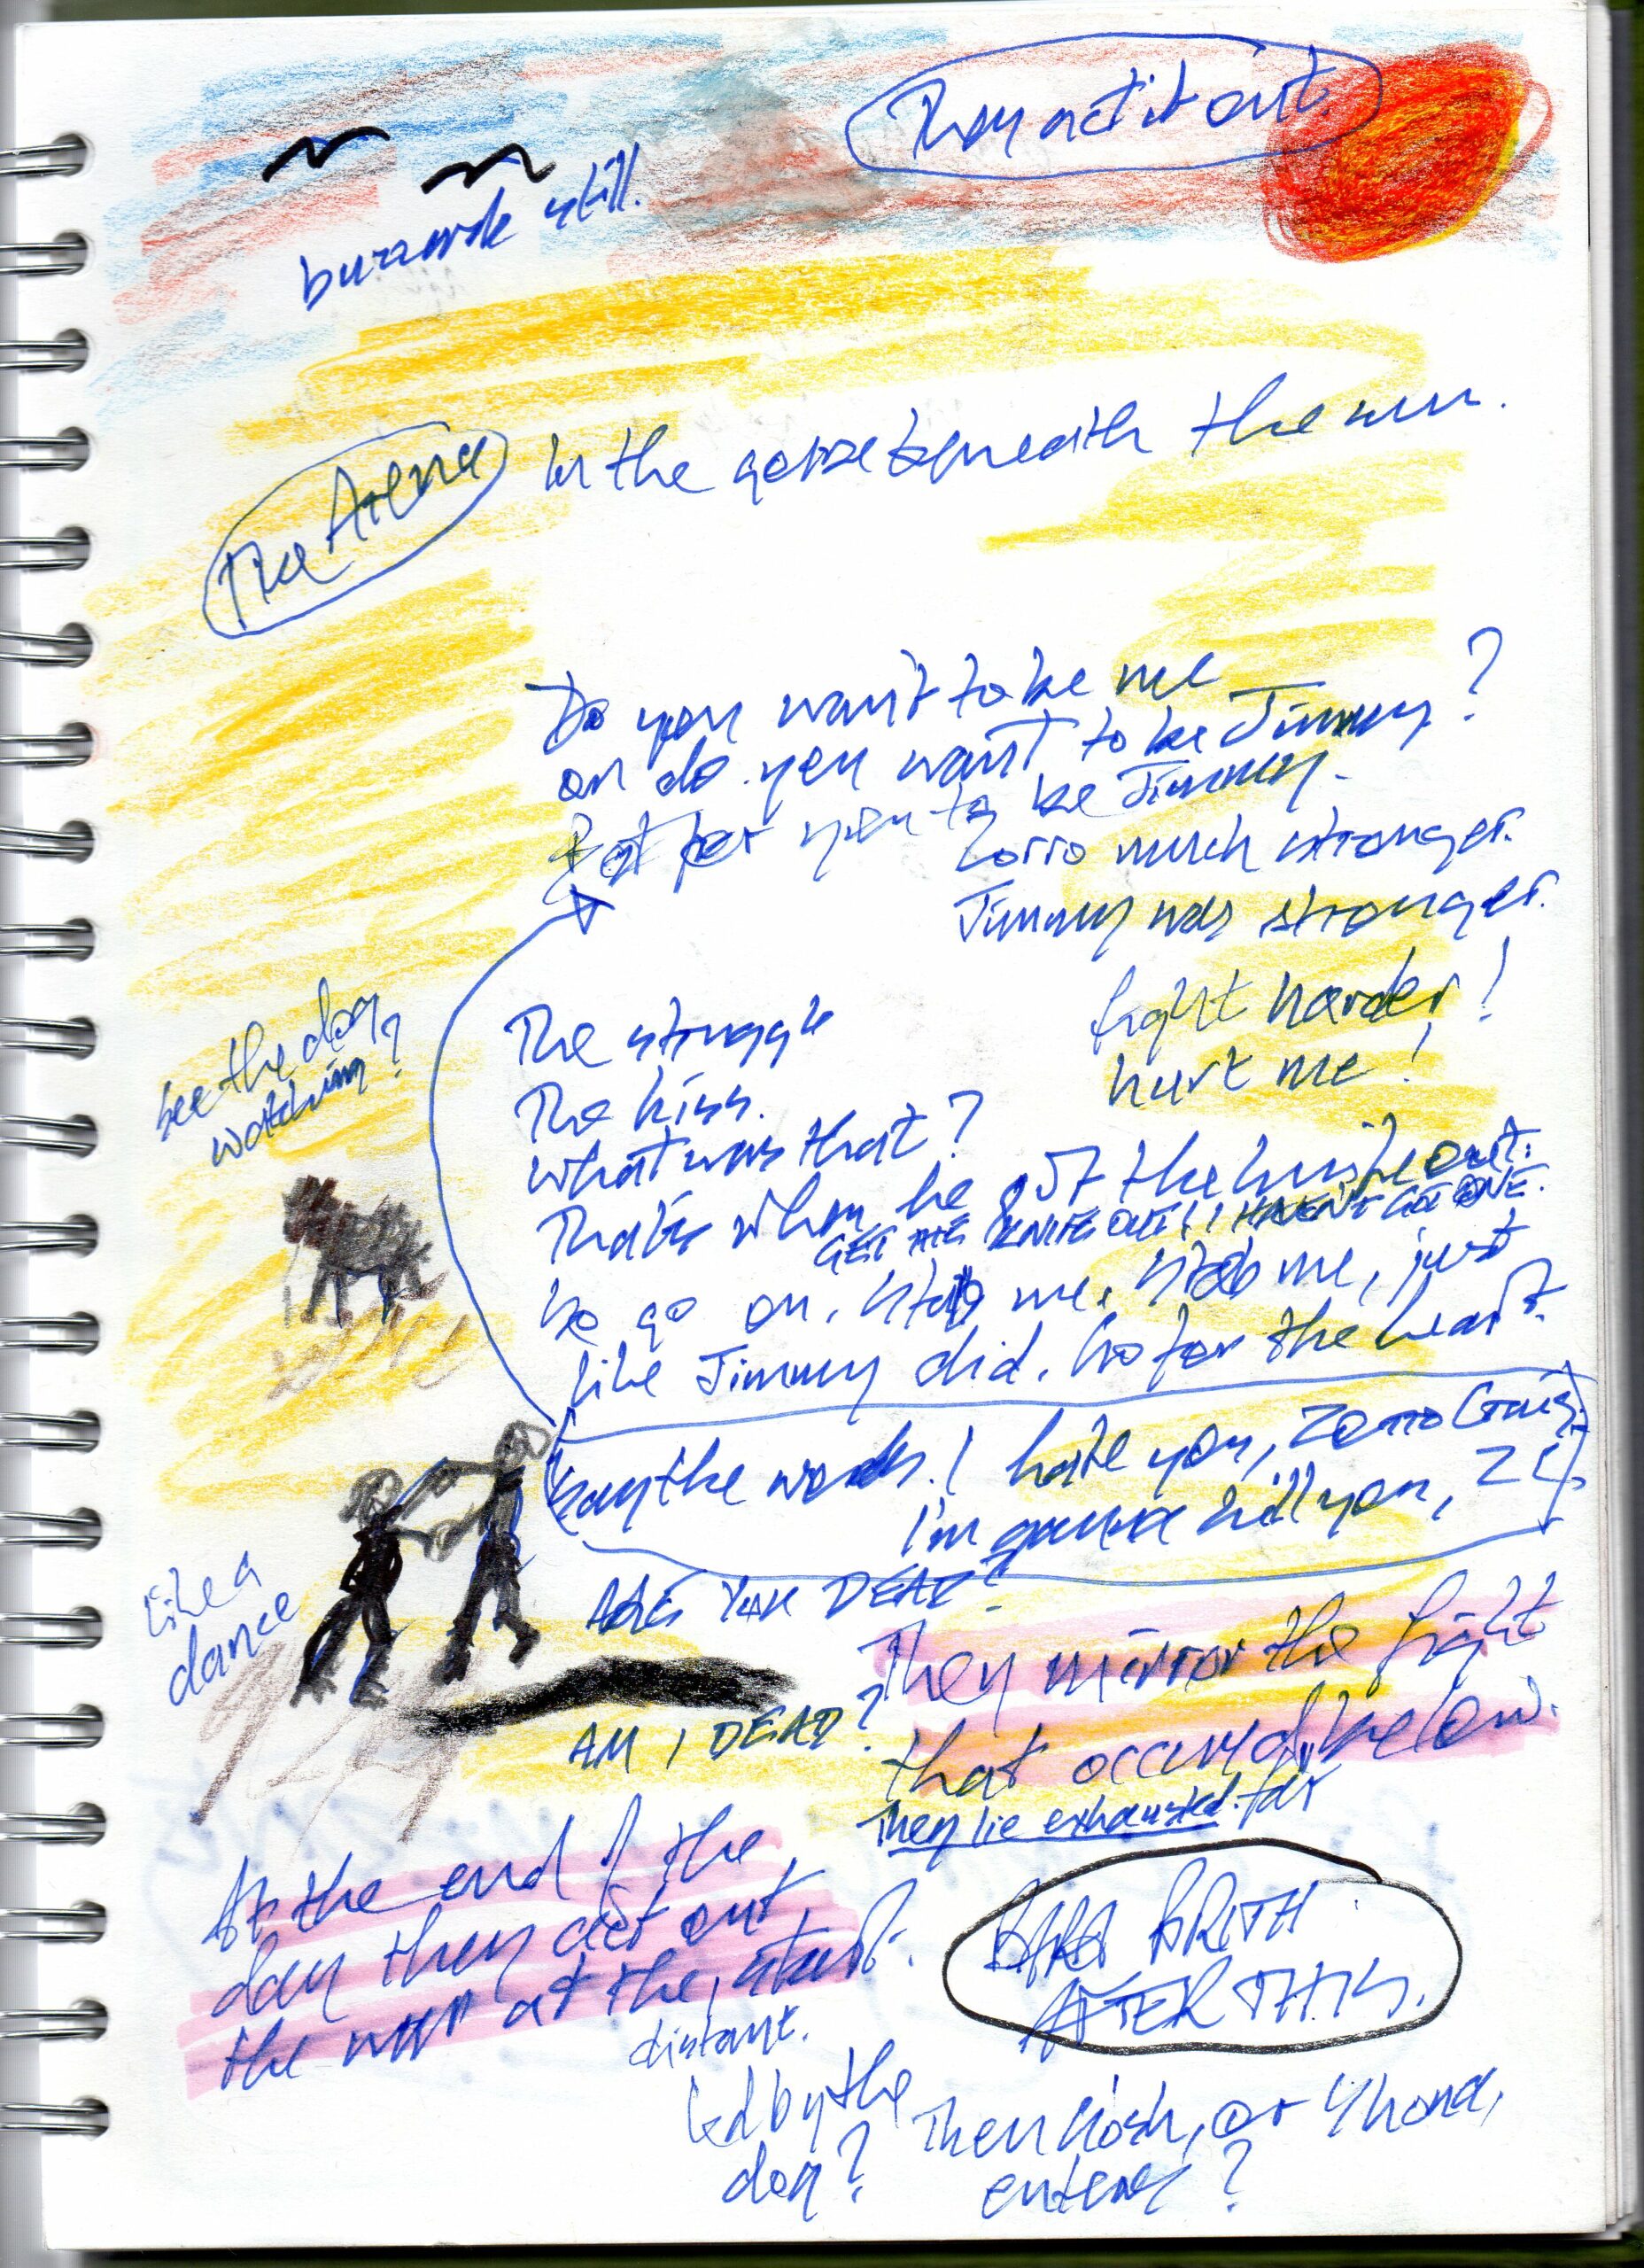 They act it out.
buzzards still.
The Arena
In the gorse beneath the sun.
Do you want to be me
or do you want to be Jimmy?
Best for you to be Jimmy.
Zorro much stronger.
Jimmy was stronger.
fight harder!
hurt me!
see the dog
watching?
The struggle
The kiss.
What was that?
That's when he got the knife out.
GET THE KNIFE OUT! I HAVEN'T GOT ONE.
So go on, stab me. Stab me, just
like Jimmy did. Go for the heart.
Say the words. I hate you, Zorro Craig
I'm gonna kill you, ZC
ARE YOU DEAD?
like a
dance
They mirror the fight
that occurred below.
AM I DEAD?
They lie exhausted.
At the end of the
day they act out
the war at the start.
distant.
AFTER THIS.
Led by the
dog?
Then Josh, or
enters?